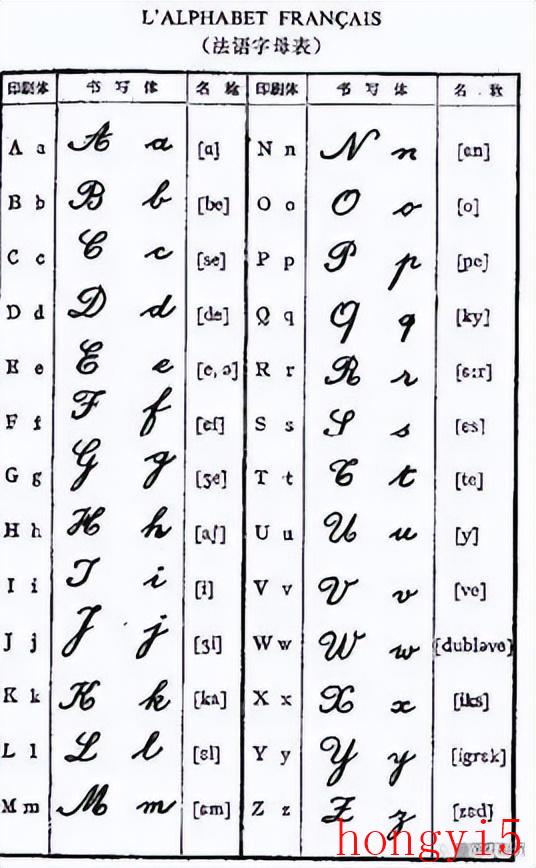 L'ALPHABET FRANÇAIS
(法语字母表)
印刷体 书写体 名称 印刷体 书写体 名称
A a A a [a] N n N n [ɛn]
B b B b [be] O o O o [o]
C c C c [se] P p P p [pe]
D d D d [de] Q q Q q [ky]
E e E e [e, ə] R r R r [ɛ:r]
F f F f [ɛf] S s S s [ɛs]
G g G g [ʒe] T t T t [te]
H h H h [aʃ] U u U u [y]
I i I i [i] V v V v [ve]
J j J j [ʒi] W w W w [dubləve]
K k K k [ka] X x X x [iks]
L l L l [ɛl] Y y Y y [igrɛk]
M m M m [ɛm] Z z Z z [zɛd]
hongyi5